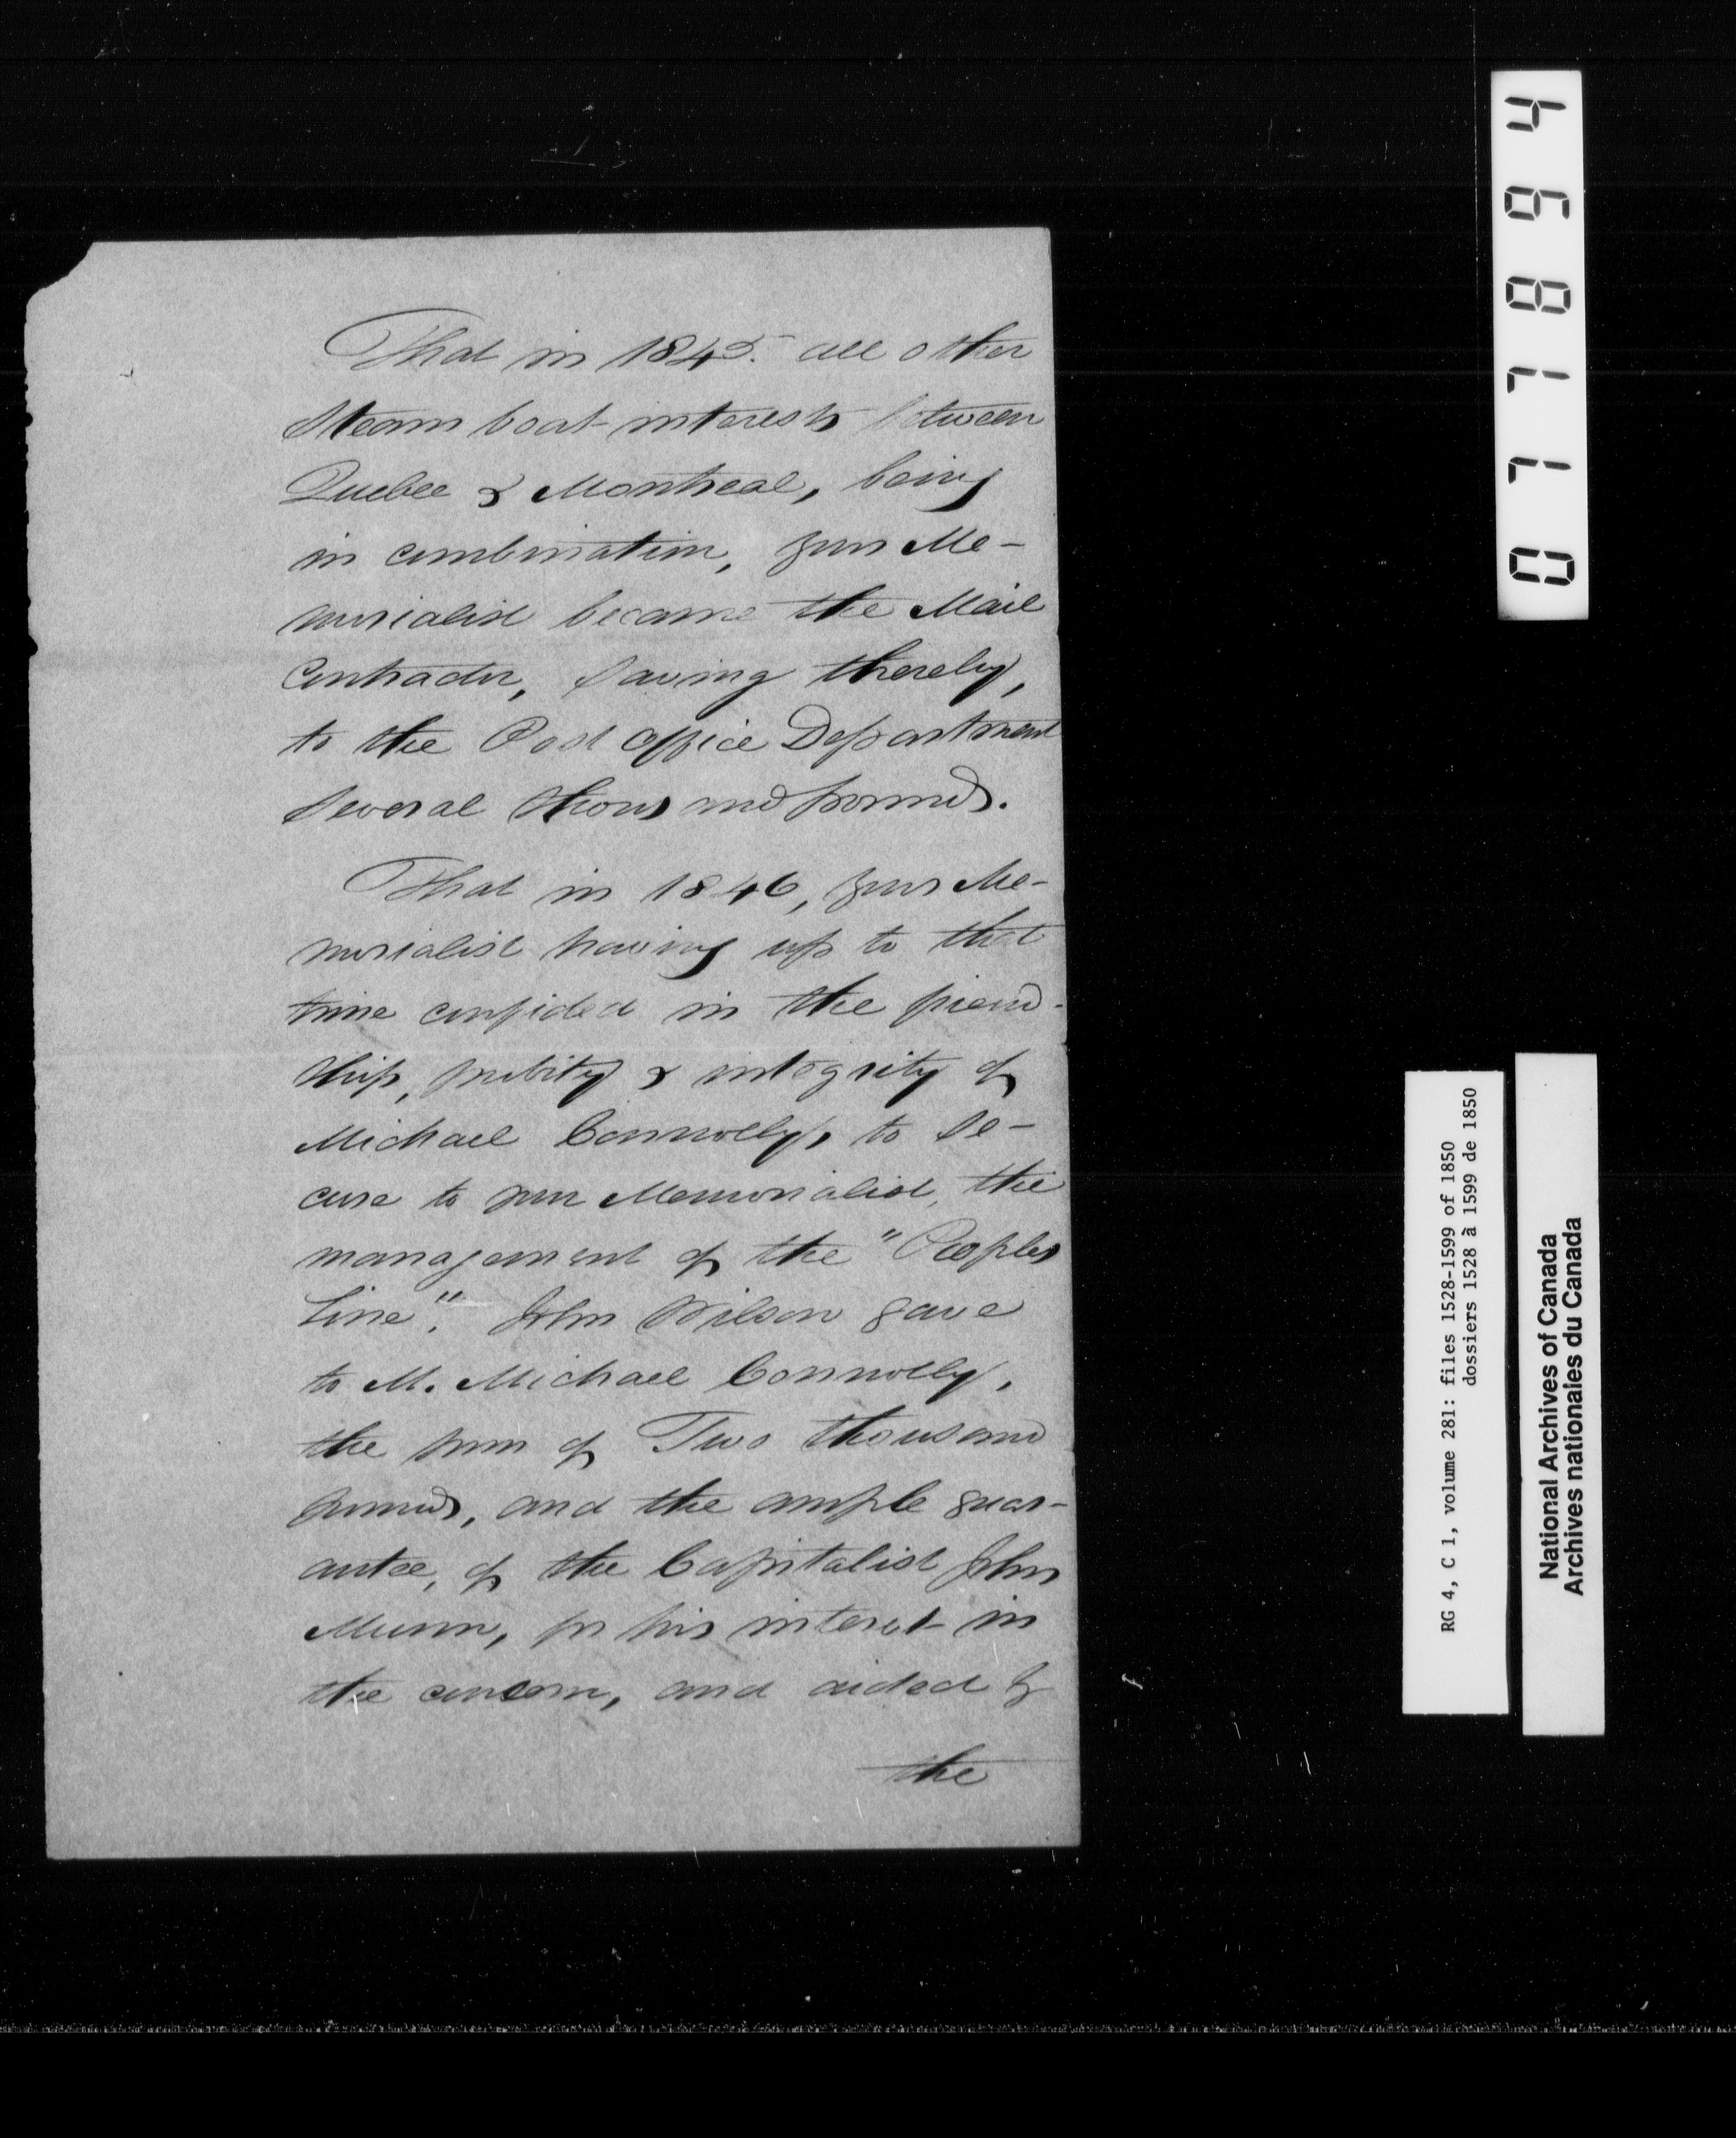 That in 1845. all other
Steam boat interests between
Quebec & Montreal, being
in combination, your Me-
morialist became the Mail
Contractor, saving thereby,
to the Post office Department
several thousand pounds.
That in 1846, your Me-
morialist having up to that
time confided in the friend-
ship, probity & integrity of
Michael Connolly, to se-
cure to your Memorialist, the
management of the "Peoples
Line". John Wilson gave
to M. Michael Connolly,
the sum of Two thousand
pounds, and the ample guar-
antee, of the Capitalist John
Munn, for his interest in
the concern, and aided by
the
077894
RG 4, C 1, volume 281: files 1528-1599 of 1850
dossiers 1528 à 1599 de 1850
National Archives of Canada
Archives nationales du Canada